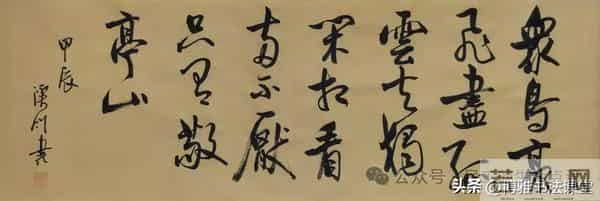 眾鳥高
飛盡孤
雲去獨
閑相看
兩不厭
只有敬
亭山
甲辰
書
公众号
头条 @博雅书法课堂